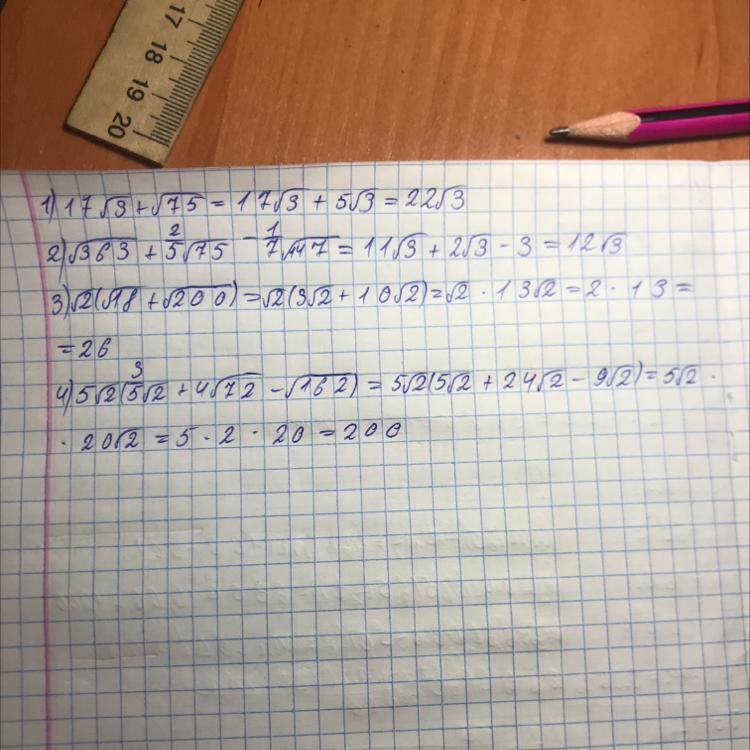 17 18 19 20
1) 17√3 + √75 = 17√3 + 5√3 = 22√3
2) √363 + 2/5√75 - 1/7√147 = 11√3 + 2√3 - 3 = 12√3
3) √2(√18 + √200) = √2(3√2 + 10√2) = √2 · 13√2 = 2 · 13 =
= 26
4) 5√2(5√2 + 4∛72 - √162) = 5√2(5√2 + 24√2 - 9√2) = 5√2 ·
· 20√2 = 5 · 2 · 20 = 200